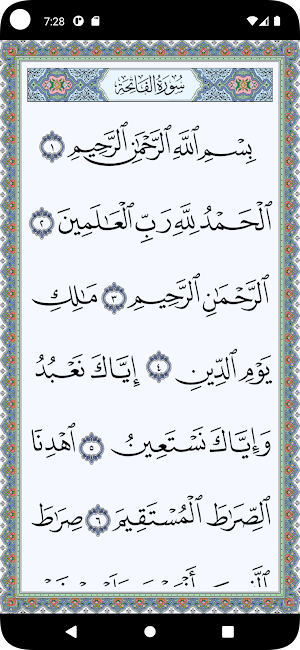 7:28
سُورَةُ الْفَاتِحَةِ
بِسْمِ ٱللَّهِ ٱلرَّحْمَٰنِ ٱلرَّحِيمِ ١
ٱلْحَمْدُ لِلَّهِ رَبِّ ٱلْعَٰلَمِينَ ٢
ٱلرَّحْمَٰنِ ٱلرَّحِيمِ ٣ مَٰلِكِ
يَوْمِ ٱلدِّينِ ٤ إِيَّاكَ نَعْبُدُ
وَإِيَّاكَ نَسْتَعِينُ ٥ ٱهْدِنَا
ٱلصِّرَٰطَ ٱلْمُسْتَقِيمَ ٦ صِرَٰطَ